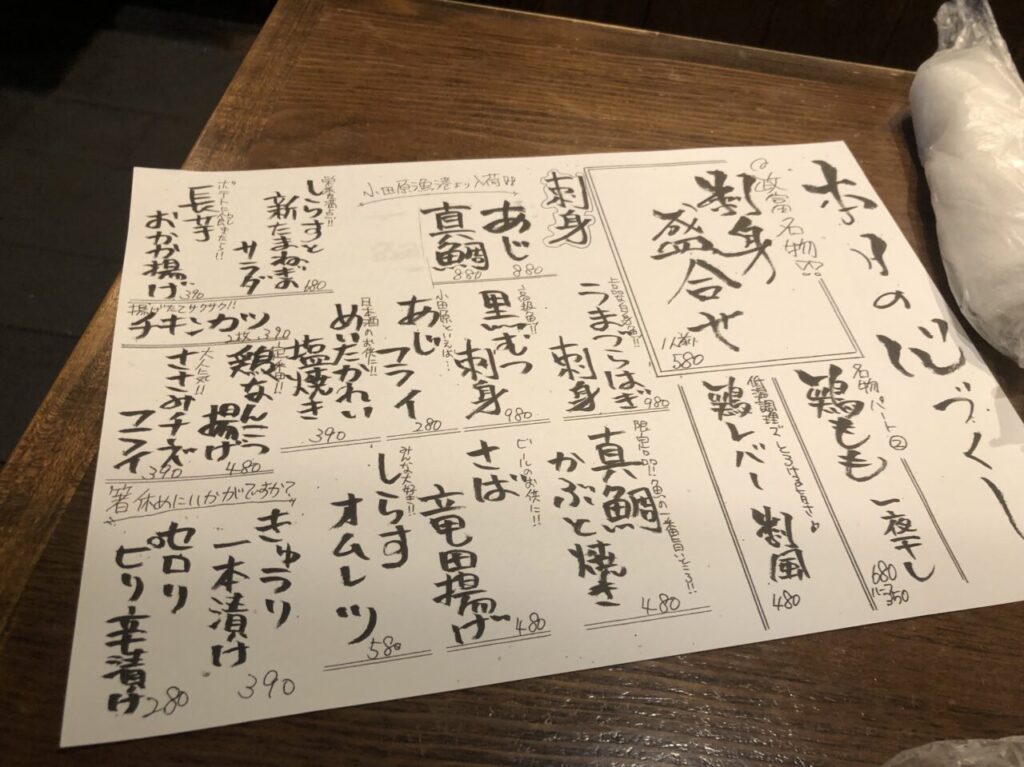 本日の心づくし
政常名物!!
刺身
盛合せ
1人前
580
名物パート②
鶏もも一夜干し
680
ハーフ350
低温調理でとろける旨さ♪
鶏レバー刺風
480
刺身
小田原漁港より入荷!!
あじ
880
真鯛
880
上品な白身魚!!
うまづらはぎ
刺身
980
高級魚!!
黒むつ
刺身
980
小田原といえば…
あじ
フライ
280
日本酒のお供に!!
めいたかれい
塩焼き
390
限定品!!魚の一番旨いところ!!
真鯛
かぶと焼き
480
ビールのお供に!!
さば
竜田揚げ
480
みんな大好き!!
しらす
オムレツ
580
栄養満点!!
しらすと
新たまねぎ
サラダ
680
長芋
おかか揚げ
390
揚げたてサクサク!!
チキンカツ
2枚 390
定番!!
鶏なんこつ
揚げ
480
大人気!!
ささみチーズ
フライ
390
箸休めにいかがですか?
きゅうり
一本漬け
390
セロリ
ピリ辛漬け
280